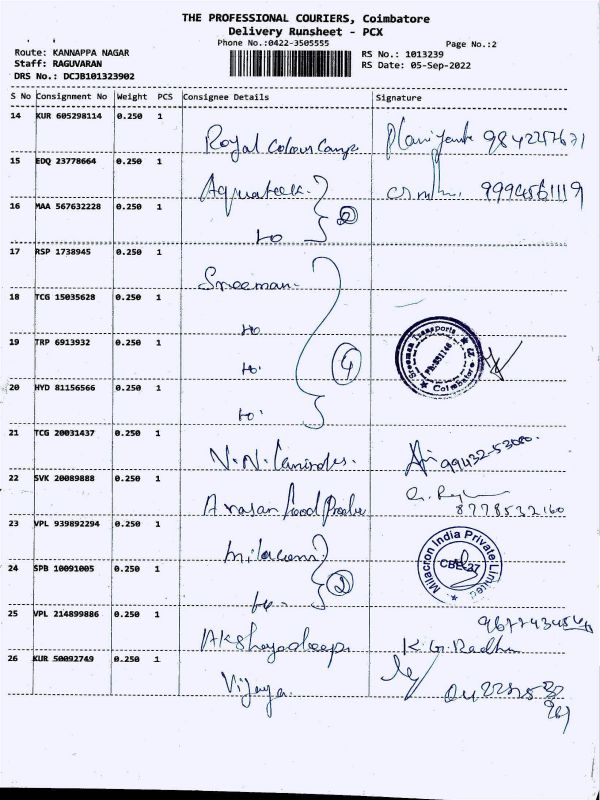 THE PROFESSIONAL COURIERS, Coimbatore
Delivery Runsheet - PCX
Phone No.:0422-3505555
Page No.:2
Route: KANNAPPA NAGAR
RS No.: 1013239
Staff: RAGUVARAN
RS Date: 05-Sep-2022
DRS No.: DCJB101323902
S No Consignment No Weight PCS Consignee Details Signature
14 KUR 605298114 0.250 1
Royal Colour
15 EDQ 23778664 0.250 1
Aquateck. 9994561119
16 MAA 567632228 0.250 1
to 2
17 RSP 1738945 0.250 1
Sreeman.
18 TCG 15035628 0.250 1
to
19 TRP 6913932 0.250 1
to. 4
Sreeman Transports
Coimbatore
20 HYD 81156566 0.250 1
to.
21 TCG 20031437 0.250 1
N.N. 99432-53000.
22 SVK 20089888 0.250 1
Arasan Food 8778532160
23 VPL 939892294 0.250 1
Milacron
Milacron India Private Limited
24 SPB 10091005 0.250 1
to. 2
25 VPL 214899886 0.250 1
Akshayadeep K.G. Radha
26 KUR 50092749 0.250 1
Vijaya